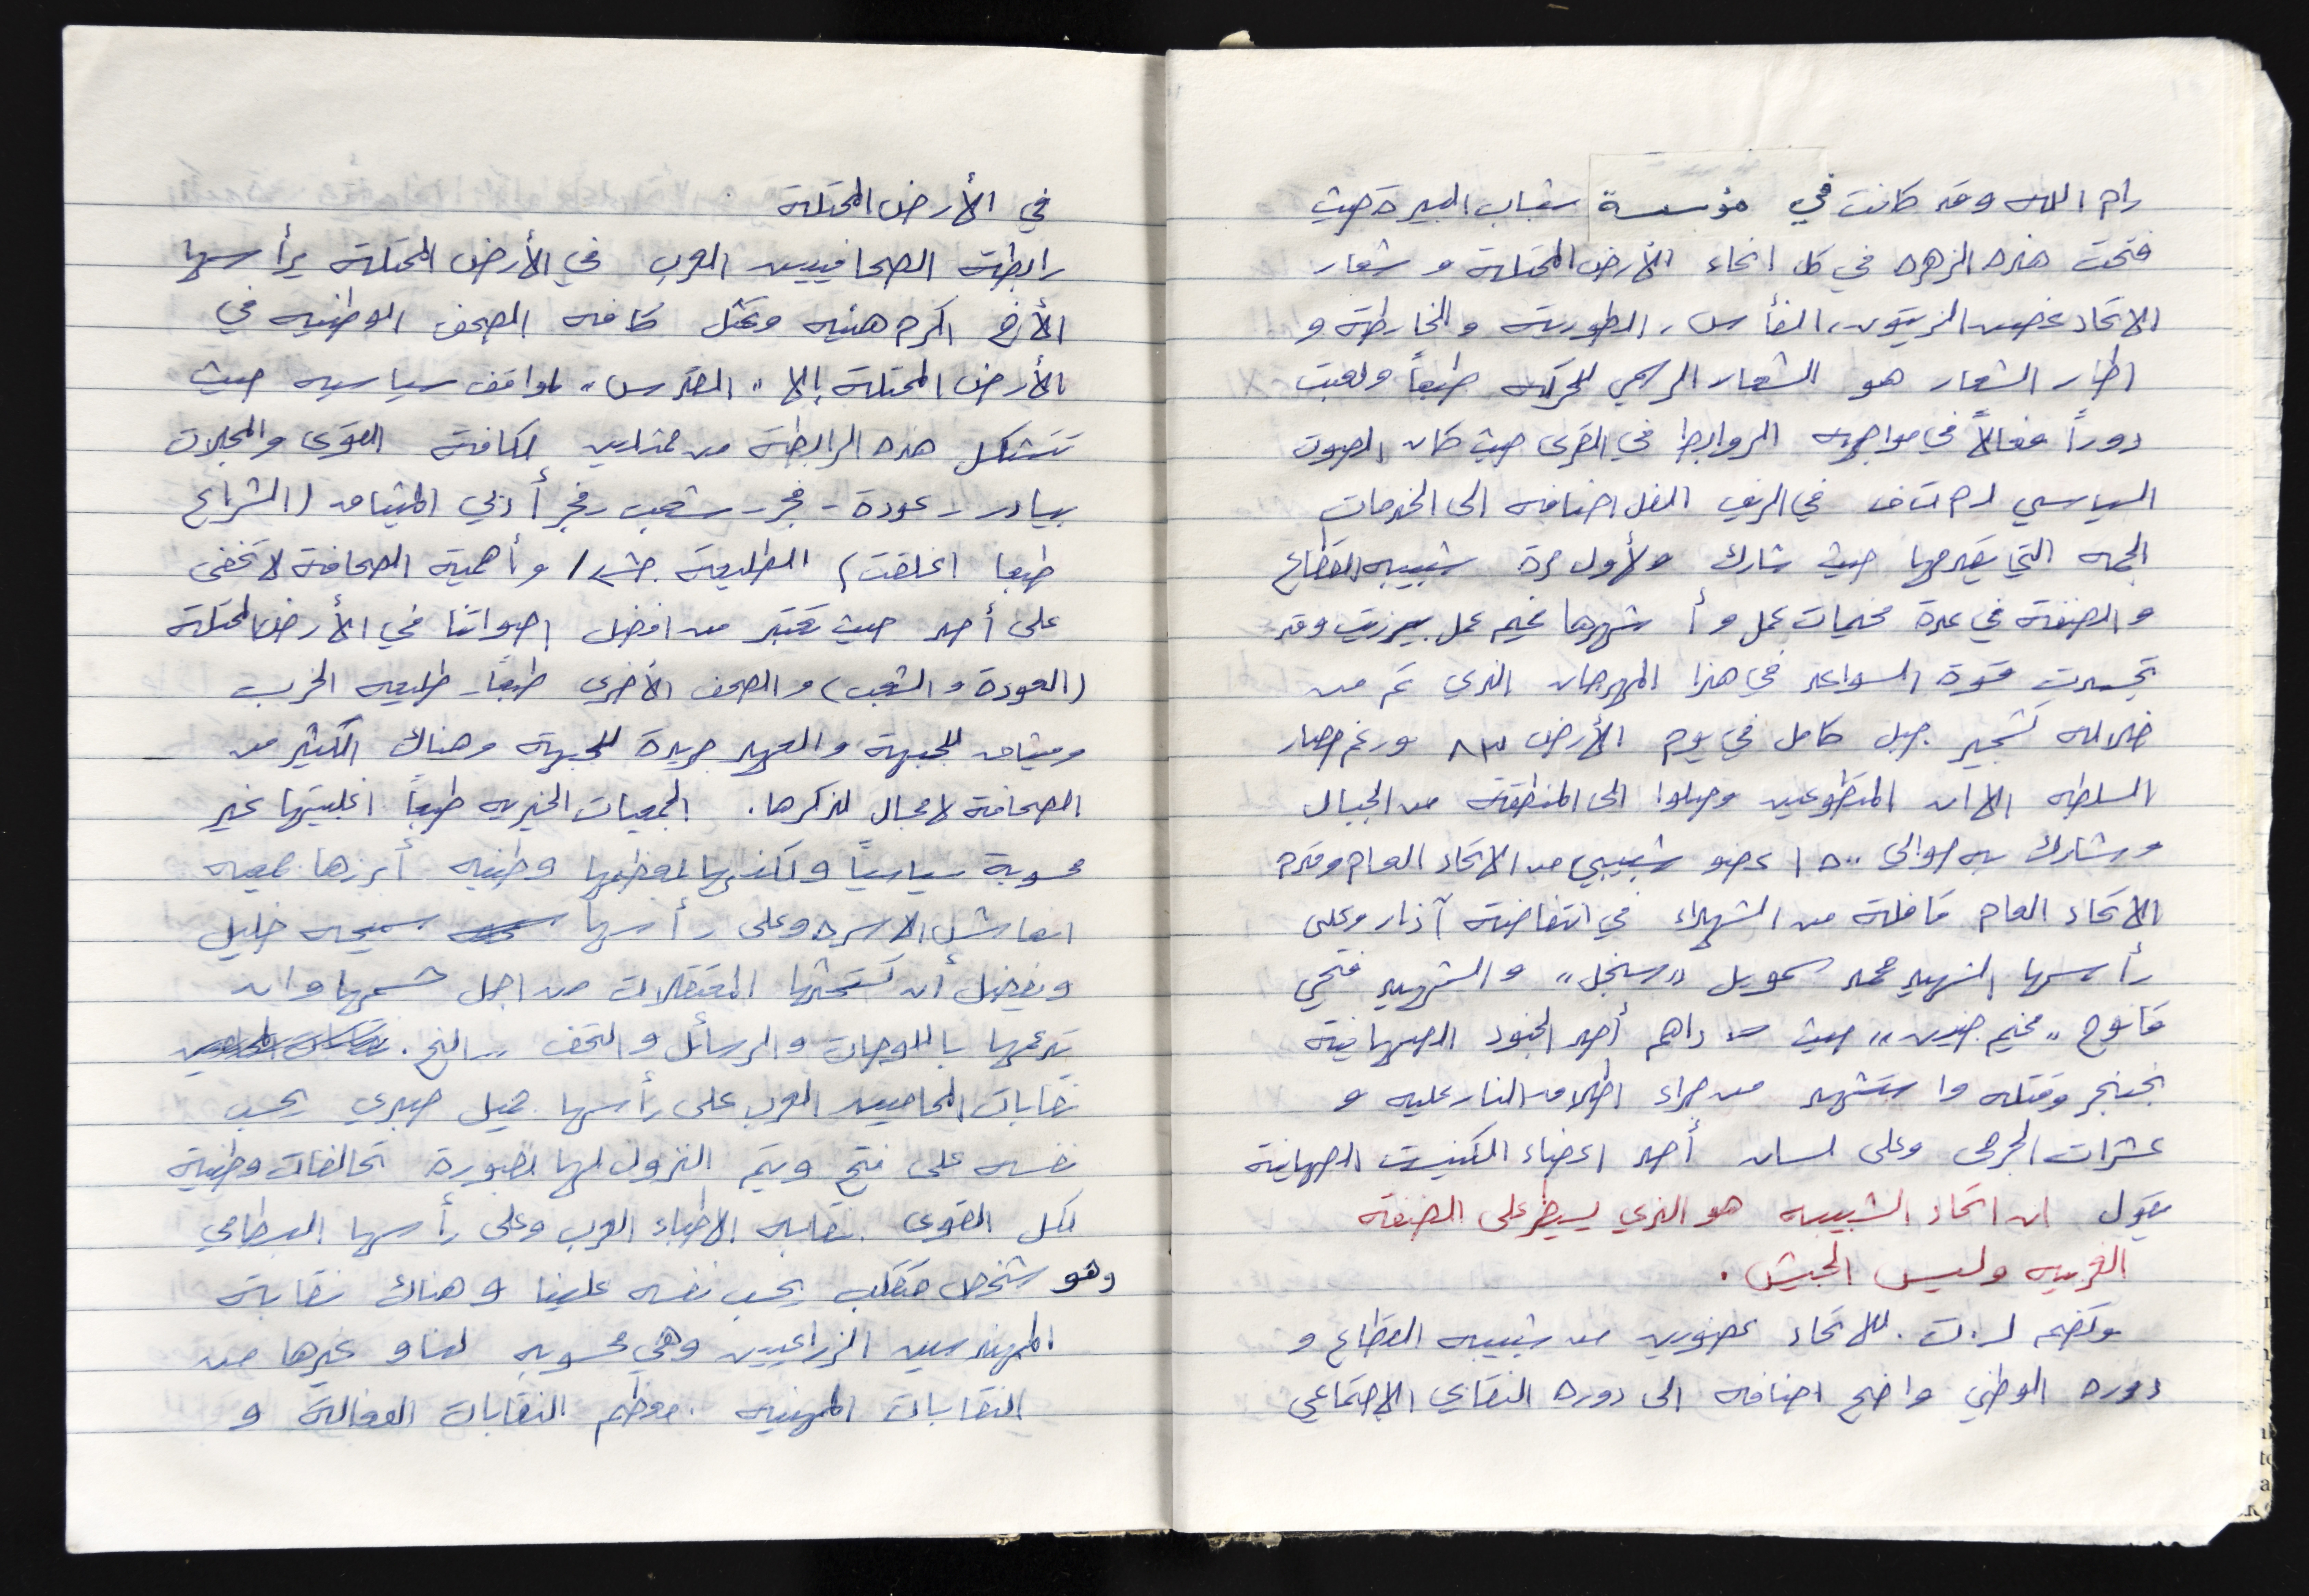 رام الله وقد كانت في مؤسسة شباب البيرة حيث
فتحت هذه الزهره في كل انحاء الأرض المحتلة و شعار
الاتحاد غصن الزيتون، الفأس، الطورية والخارطة و
اطار الشعار هو الشعار الرسمي للحركه طبعاً ولعبت
دوراً فعالاً في مواجهه الروابط في القرى حيث كان الصوت
السياسي لـ م ت ف في الريف الفل اضافه الى الخدمات
الجمه التي يقدمها حيث شارك ولأول مرة شبيبه القطاع
والضفة في عدة مخيمات عمل وأ شهرها مخيم عمل بيرزيت وقد
تجسدت قوة السواعد في هذا المهرجان الذي تم من
خلاله تشجير جبل كامل في يوم الأرض ٨٣ ورغم حصار
السلطه الا ان المتطوعين وصلوا الى المنطقة من الجبال
وشارك به حوالى ١٥٠٠ عضو شبيبي من الاتحاد العام وقدم
الاتحاد العام قافلة من الشهداء في انتفاضة آذار وعلى
رأسها الشهيد محمد سمويل "سنجل" والشهيد فتحي
"مخيم جنين" حيث داهم أحد الجنود الصهاينة
بخنجر وقتله واستشهد من جراء اطلاق النار عليه و
عشرات الجرحى وعلى لسان أحد اعضاء الكنيست الصهاينة
يقول ان اتحاد الشبيبه هو الذي يسيطر على الضفة
الغربيه وليس الجيش.
وتضم ل.ت. للاتحاد عضوين من شبيبه القطاع و
دوره الوطني واضح اضافه الى دوره النقابي الاجتماعي
في الأرض المحتلة
رابطة الصحافيين العرب في الأرض المحتلة يرأسها
الأخ اكرم هنيه وتمثل كافه الصحف الوطنيه في
الأرض المحتلة إلا "القدس" لمواقف سياسيه حيث
تتشكل هذه الرابطة من ممثلين لكافة القوى والمجلات
بيادر - عودة - فجر - شعب - فجر أدبي الميثاق (الشراع
طبعا اغلقت) الطليعة / وأهمية الصحافة لا تخفى
على أحد حيث تعتبر من افضل اصواتنا في الأرض المحتلة
(العودة والشعب) والصحف الأخرى طبعاً - طليعه الحزب
وميثاق للجبهة والعهد جريدة للجبهة وهناك الكثير من
الصحافة لا مجال لذكرها. الجمعيات الخيريه طبعاً اغلبيتها غير
محسوبة سياسياً ولكنها بمعظمها وطنيه أبرزها جمعيه
انعاش الاسره وعلى رأسها سميحه خليل
ويفضل أن تستحثها المعتقلات من اجل وان
تدعمها باللوحات والرسائل والتحف ... الخ.
نقابات المحاميين العرب على رأسها جميل صبري يحسب
نفسه على فتح ويتم النزول لها بصورة تحالفات وطنية
لكل القوى. نقابه الاطباء العرب وعلى رأسها البسطامي
وهو شخص متقلب يحسب نفسه علينا وهناك نقابة
المهندسين الزراعيين وهي محسوبه لنا و غيرها من
النقابات المهنيه. معظم النقابات العمالية و